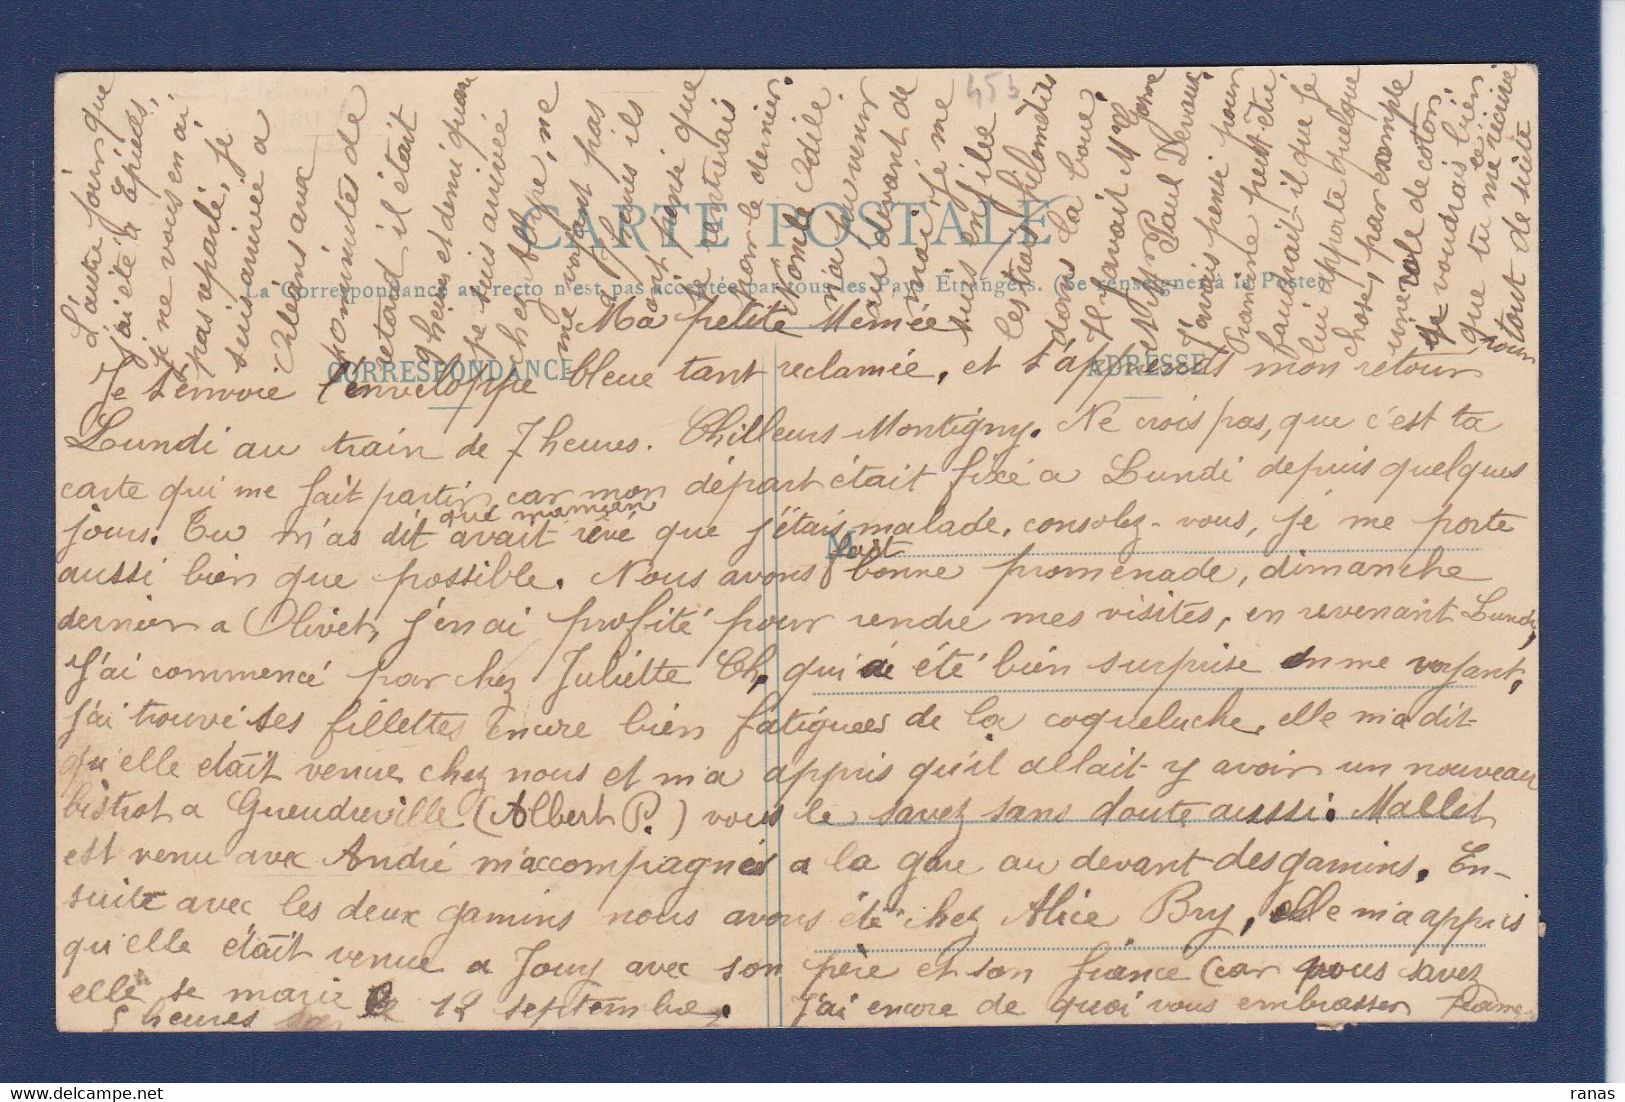 453
CARTE POSTALE
La Correspondance au recto n'est pas acceptée par tous les Pays Étrangers. (Se renseigner à la Poste)
CORRESPONDANCE
ADRESSE
M
Ma petite Mémée
Je t'envoie l'enveloppe bleue tant reclamée, et t'apprends mon retour
Lundi au train de 7 heures. Chilleurs Montigny. Ne crois pas, que c'est ta
carte qui me fait partir car mon départ était fixé a Lundi depuis quelques
jours. Tu m'as dit que maman avait rêvé que j'étais malade, consolez-vous, je me porte
aussi bien que possible. Nous avons fait bonne promenade, dimanche
dernier a Olivet, j'en ai profité pour rendre mes visites, en revenant Lundi,
J'ai commencé par chez Juliette Ch. qui a été bien surprise en me voyant,
j'ai trouvé ses fillettes encore bien fatiguées de la coqueluche, elle m'a dit
qu'elle etait venue chez nous et m'a appris qu'il allait y avoir un nouveau
bistrot a Gueudreville (Albert P.) vous le savez sans doute aussi. Mallet
est venu avec André m'accompagner a la gare au devant des gamins. En-
suite avec les deux gamins nous avons été chez Alice Bry, elle m'a appris
qu'elle était venue a Jouy avec son père et son fiancé (car vous savez
elle se marie le 12 septembre. J'ai encore de quoi vous embrasser
5 heures
L'autre jour que
j'ai été à Epieds,
je ne vous en ai
pas reparlé, je
suis arrivée a
Orléans aux
minutes de
retard il était
heures et demi quan
je suis arrivée
chez
me
heures ils
ont pensé que
je rentrais
par le dernier.
et
m'a vu venir
au devant de
moi, je me
suis enfilée
les trois kilomètres
dans la boue.
Il y avait Melle
et Mr Paul Devaux.
J'avais pensé pour
peut-être
faudrait il que je
lui apporte quelque
chose, par exemple
une robe de coton,
je voudrais bien
que tu me écrive
pour
tout de suite
ranas